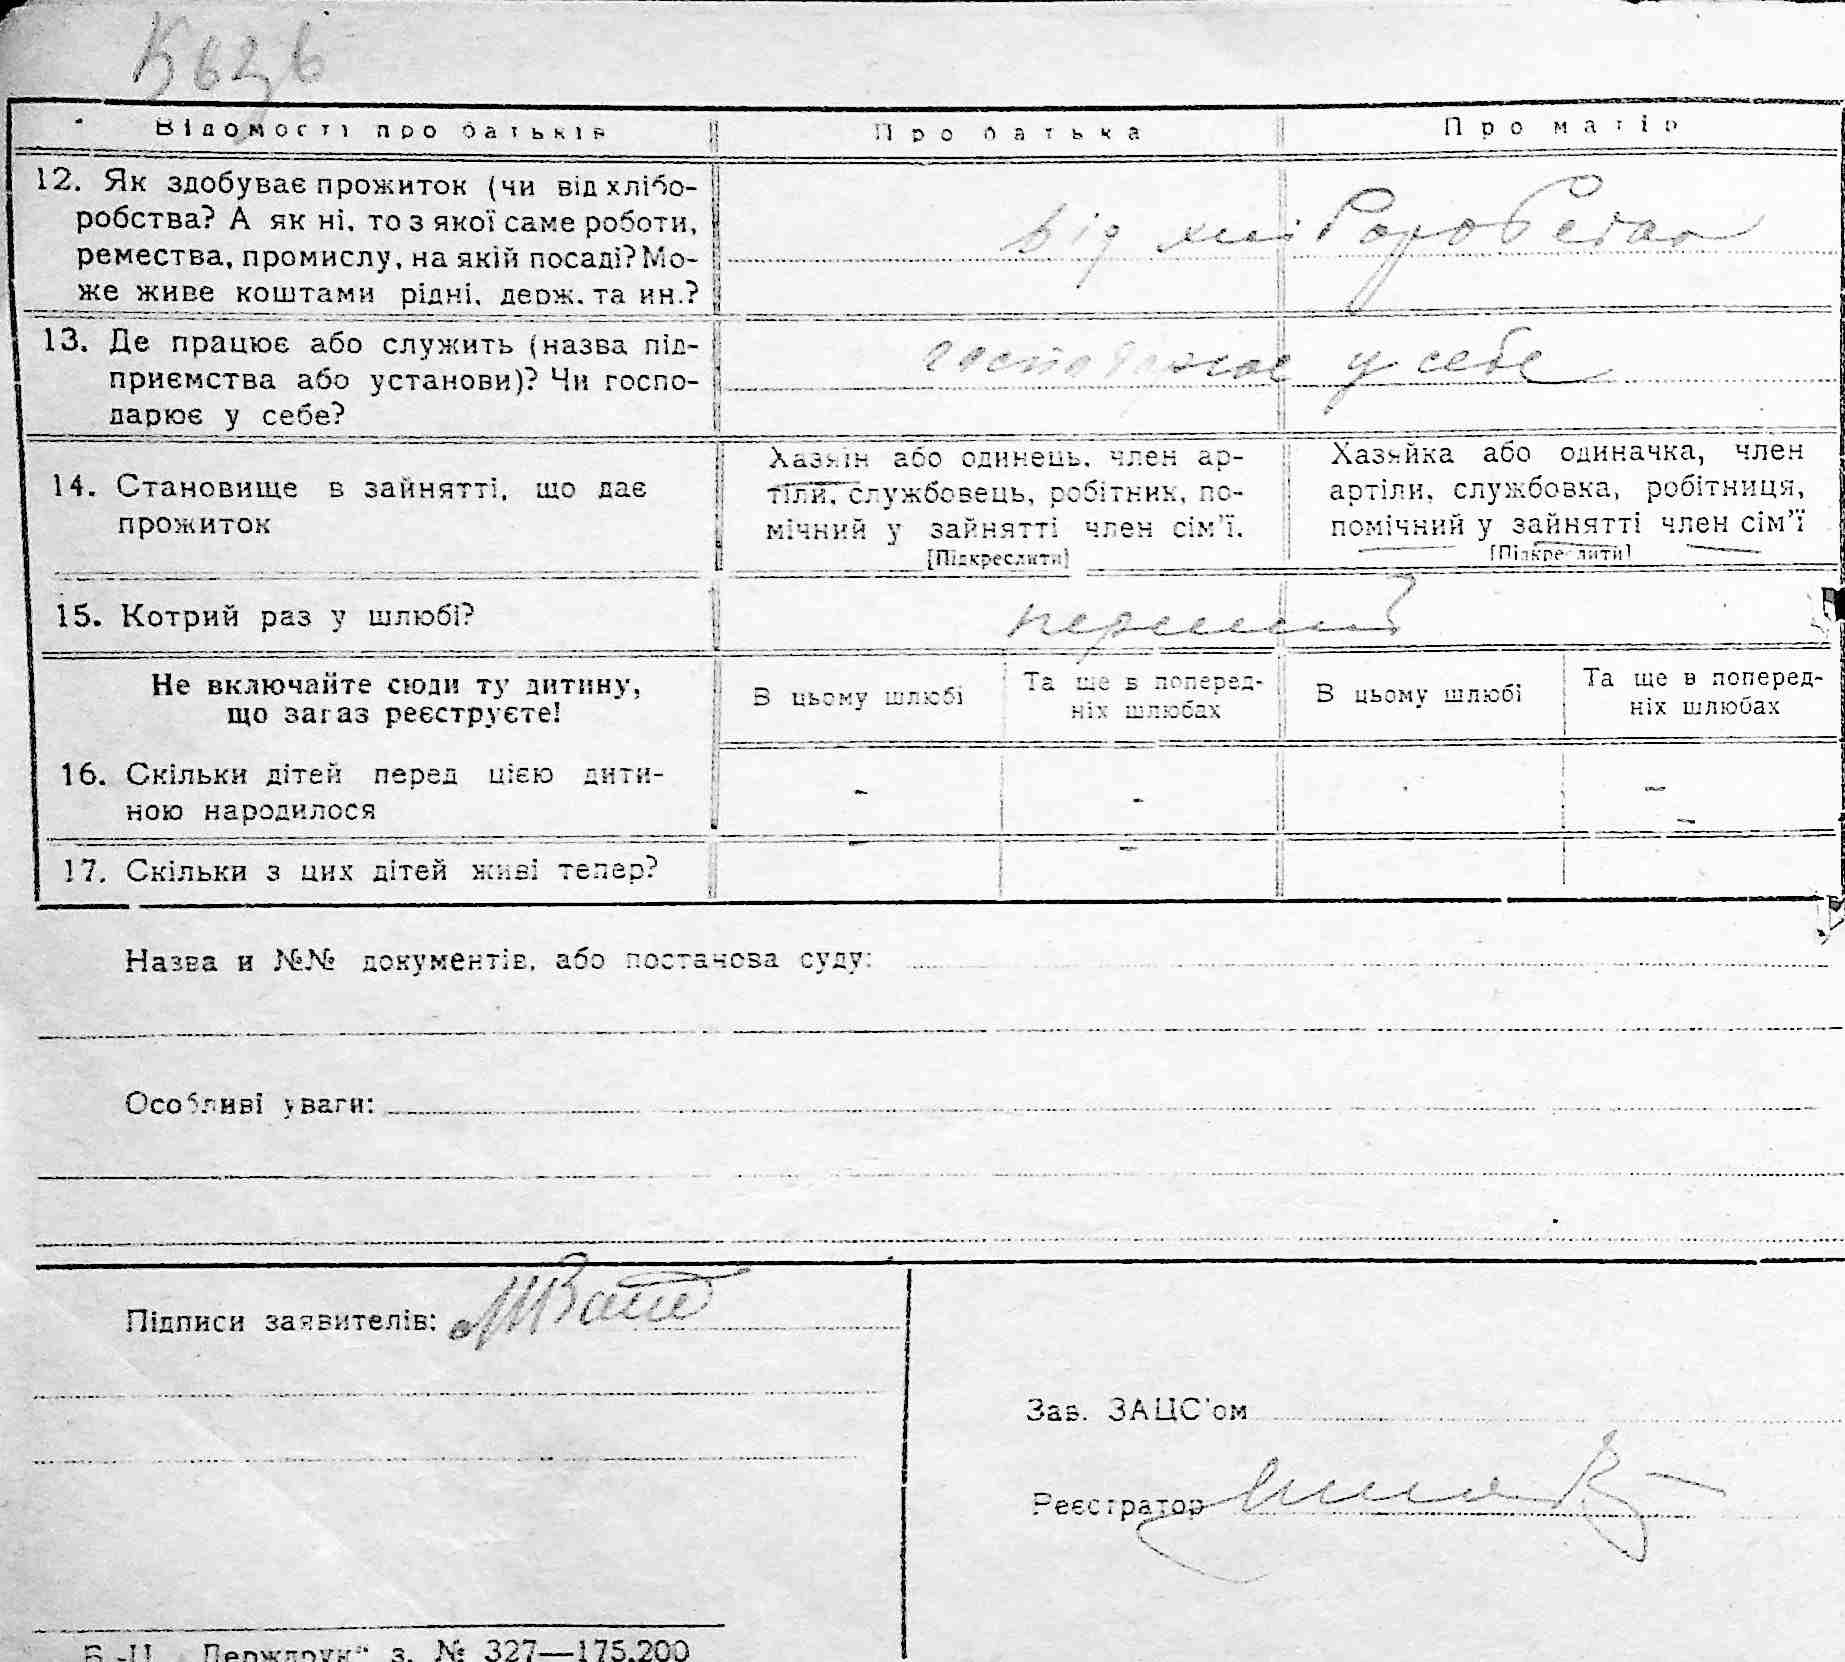 Відомості про батьків Про батька Про матір
12. Як здобуває прожиток (чи від хлібо-
робства? А як ні, то з якої саме роботи,
ремества, промислу, на якій посаді? Мо-
же живе коштами рідні, держ. та ин.?
від хліборобства
13. Де працює або служить (назва під-
приємства або установи)? Чи госпо-
дарює у себе?
господарює у себе
14. Становище в зайнятті, що дає
прожиток
Хазяїн або одинець, член ар-
тіли, службовець, робітник, по-
мічний у зайнятті член сім'ї.
[Підкреслити]
Хазяйка або одиначка, член
артіли, службовка, робітниця,
помічний у зайнятті член сім'ї
[Підкреслити]
15. Котрий раз у шлюбі?
перший
Не включайте сюди ту дитину,
що зараз реєструєте!
В цьому шлюбі
Та ще в поперед-
ніх шлюбах
В цьому шлюбі
Та ще в поперед-
ніх шлюбах
16. Скільки дітей перед цією дити-
ною народилося
- - -
17. Скільки з цих дітей живі тепер?
- - -
Назва и №№ документів, або постанова суду:
Особливі уваги:
Підписи заявителів:
Зав. ЗАЦС'ом
Реєстратор
Держдрук" з. № 327—175.200